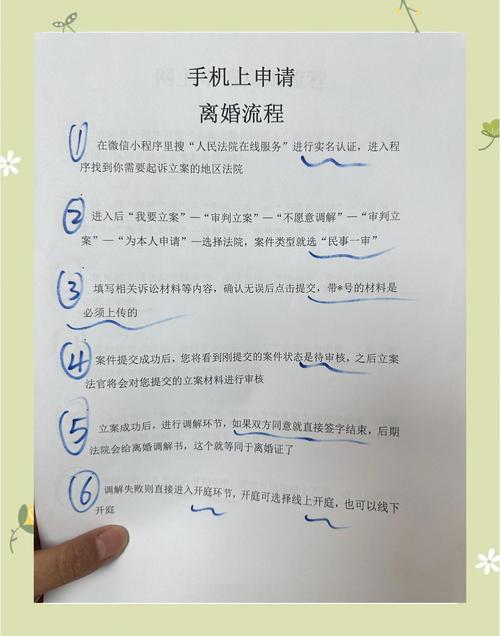 手机上申请
离婚流程
① 在微信小程序里搜“人民法院在线服务”进行实名认证，进入程
序找到你需要起诉立案的地区法院
② 进入后“我要立案”—“审判立案”—“不愿意调解”—“审判立
案”—“为本人申请”—选择法院，案件类型就选“民事一审”
③ 填写相关诉讼材料等内容，确认无误后点击提交，带*号的材料是
必须上传的
④ 案件提交成功后，您将看到刚提交的案件状态是待审核，之后立案
法官将会对您提交的立案材料进行审核
⑤ 立案成功后，进行调解环节，如果双方同意就直接签字结束，后期
法院会给离婚调解书，这个就等同于离婚证了
⑥ 调解失败则直接进入开庭环节，开庭可选择线上开庭，也可以线下
开庭